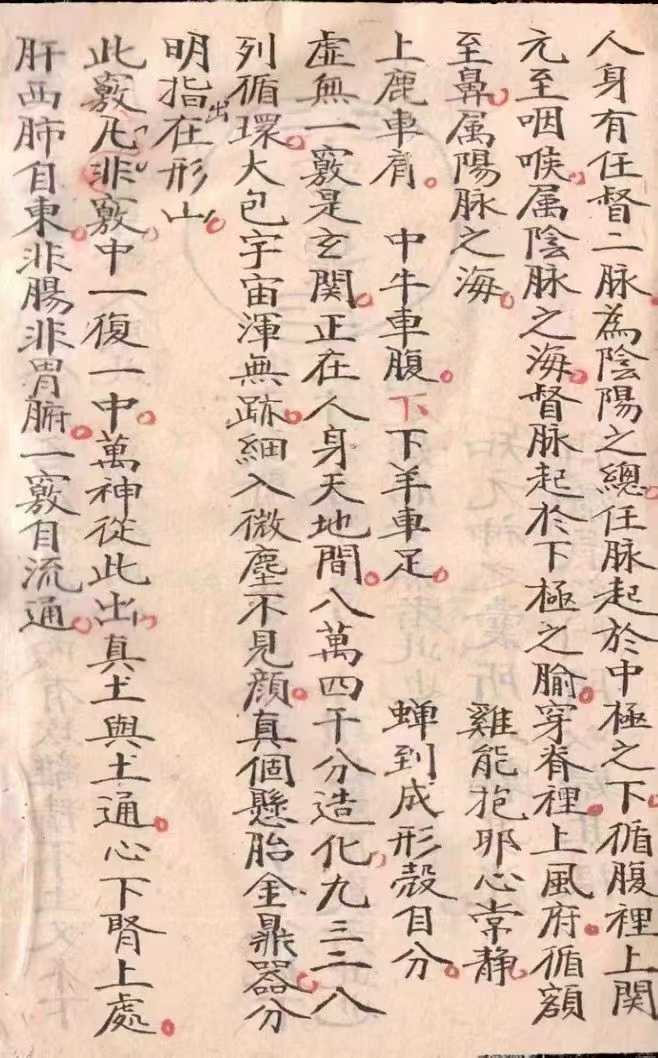 人身有任督二脉。為陰陽之總。任脉起於中極之下。循腹裡上関
元至咽喉。属陰脉之海。督脉起於下極之腧。穿脊裡。上風府。循額
至鼻。属陽脉之海。 雞能抱卵心常静。
上鹿車肩。 中牛車腹。下下羊車足。 蝉到成形殼自分。
虛無一竅是玄関。正在人身天地間。八萬四千分造化。九三二八
列循環。大包宇宙渾無跡。細入微塵不見顔。真個懸胎金鼎器。分
明指出在形山。
此竅凡非竅。中一復一中。萬神從此出。真土與土通。心下腎上處。
肝西肺自東。非腸非胃腑。一竅自流通。